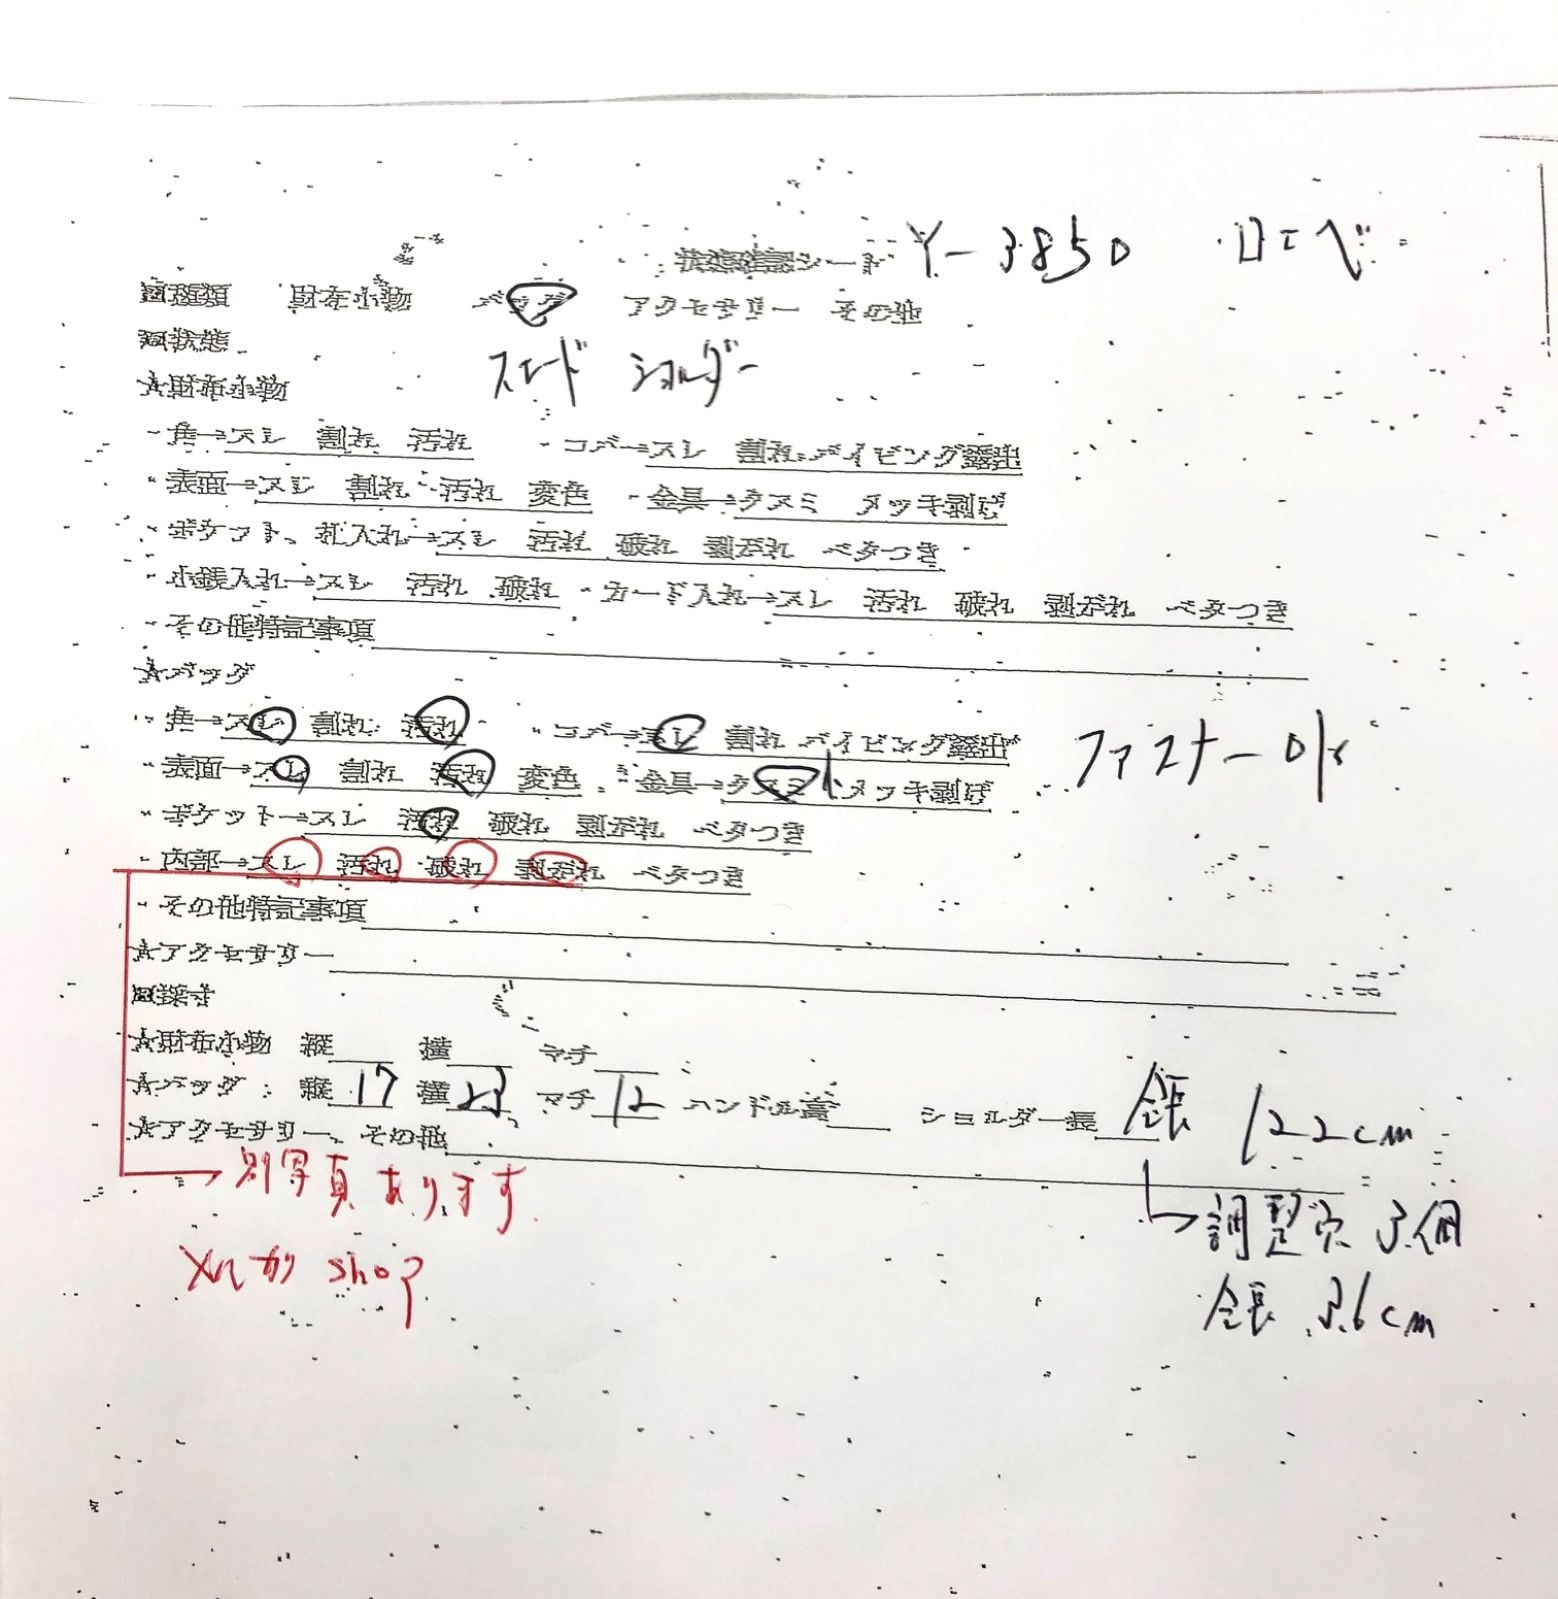 状態確認シート Y-3850 ロエベ
□種類 財布小物 バッグ アクセサリー その他
□状態
スエード ショルダー
☆財布小物
・角→スレ 割れ 汚れ ・コバ→スレ 割れ パイピング露出
・表面→スレ 割れ 汚れ 変色 ・金具→クスミ メッキ剥げ
・ポケット、札入れ→スレ 汚れ 破れ 剥がれ ベタつき
・小銭入れ→スレ 汚れ 破れ ・カード入れ→スレ 汚れ 破れ 剥がれ ベタつき
・その他特記事項
☆バッグ
・角→スレ 割れ 汚れ ・コバ→スレ 割れ パイピング露出
ファスナーOK
・表面→スレ 割れ 汚れ 変色 ・金具→クスミ メッキ剥げ
・ポケット→スレ 汚れ 破れ 剥がれ ベタつき
・内部→スレ 汚れ 破れ 剥がれ ベタつき
・その他特記事項
☆アクセサリー
□採寸
☆財布小物 縦 横 マチ
☆バッグ 縦 17 横 23 マチ 12 ハンドル高 ショルダー長 全長 122cm
☆アクセサリー、その他
→別写真あります
→調整穴 3個
メルカリ shop
全長 36cm